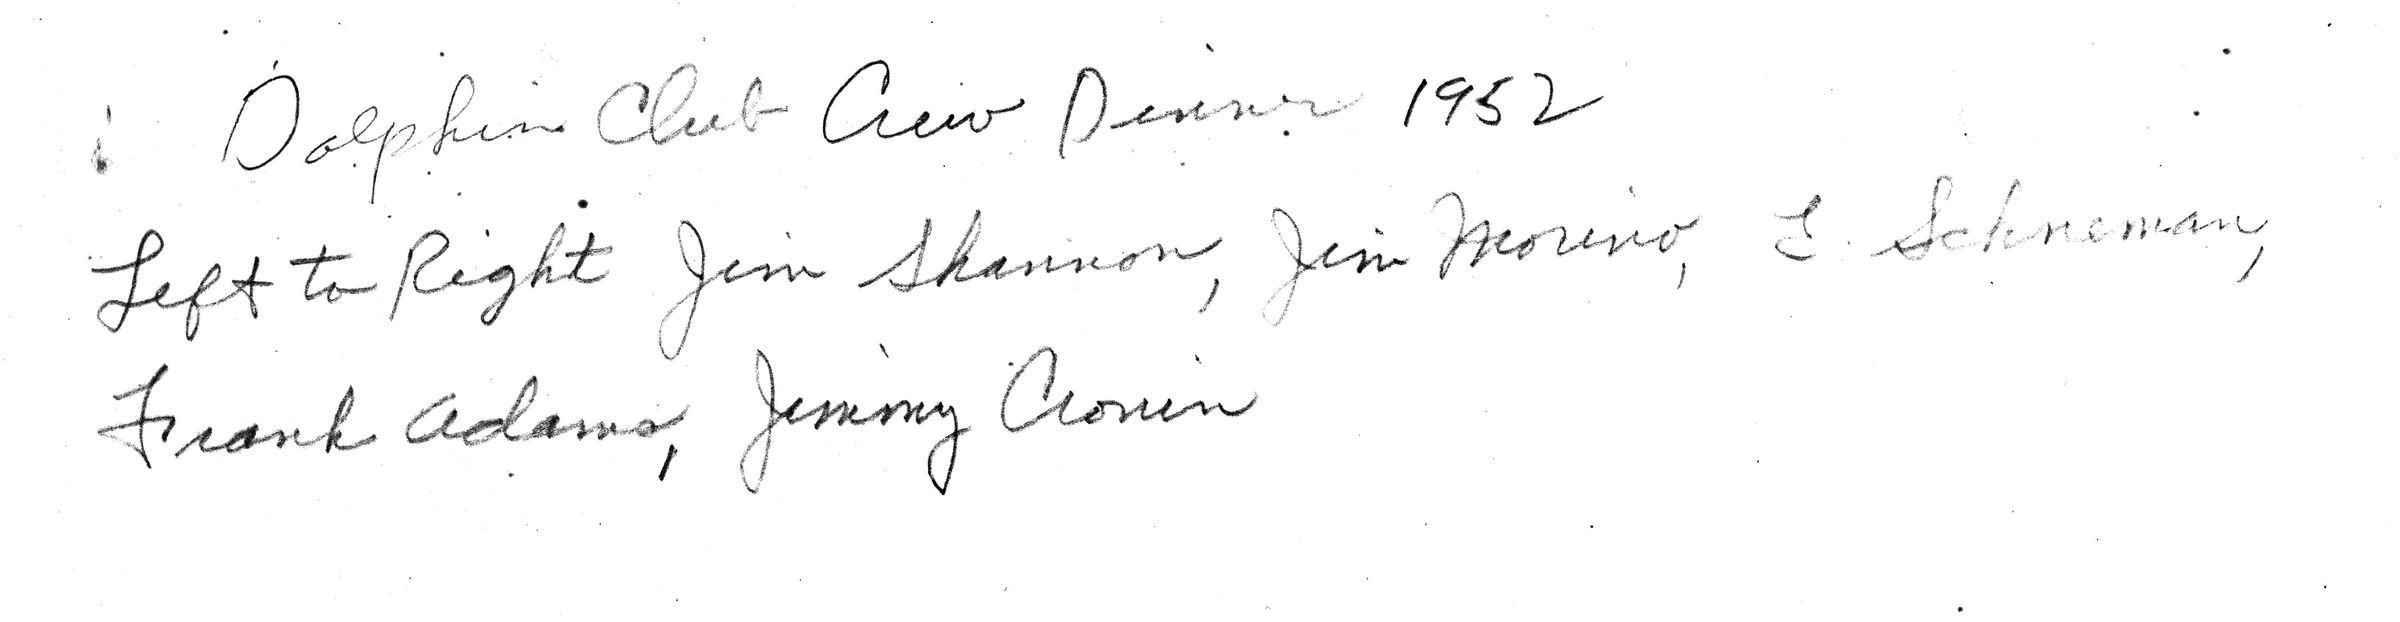 Dolphin Club Crew Dinner 1952
Left to Right Jim Shannon, Jim Morino, E. Schneman,
Frank Adams, Jimmy Cronin